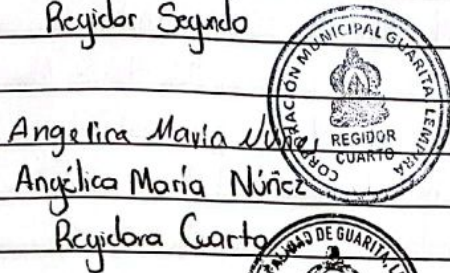 Regidor Segundo
CORPORACIÓN MUNICIPAL GUARITA LEMPIRA
REGIDOR
CUARTO
Angelica Maria Núñez
Angélica María Núñez
Regidora Cuarto
DE GUARITA, L